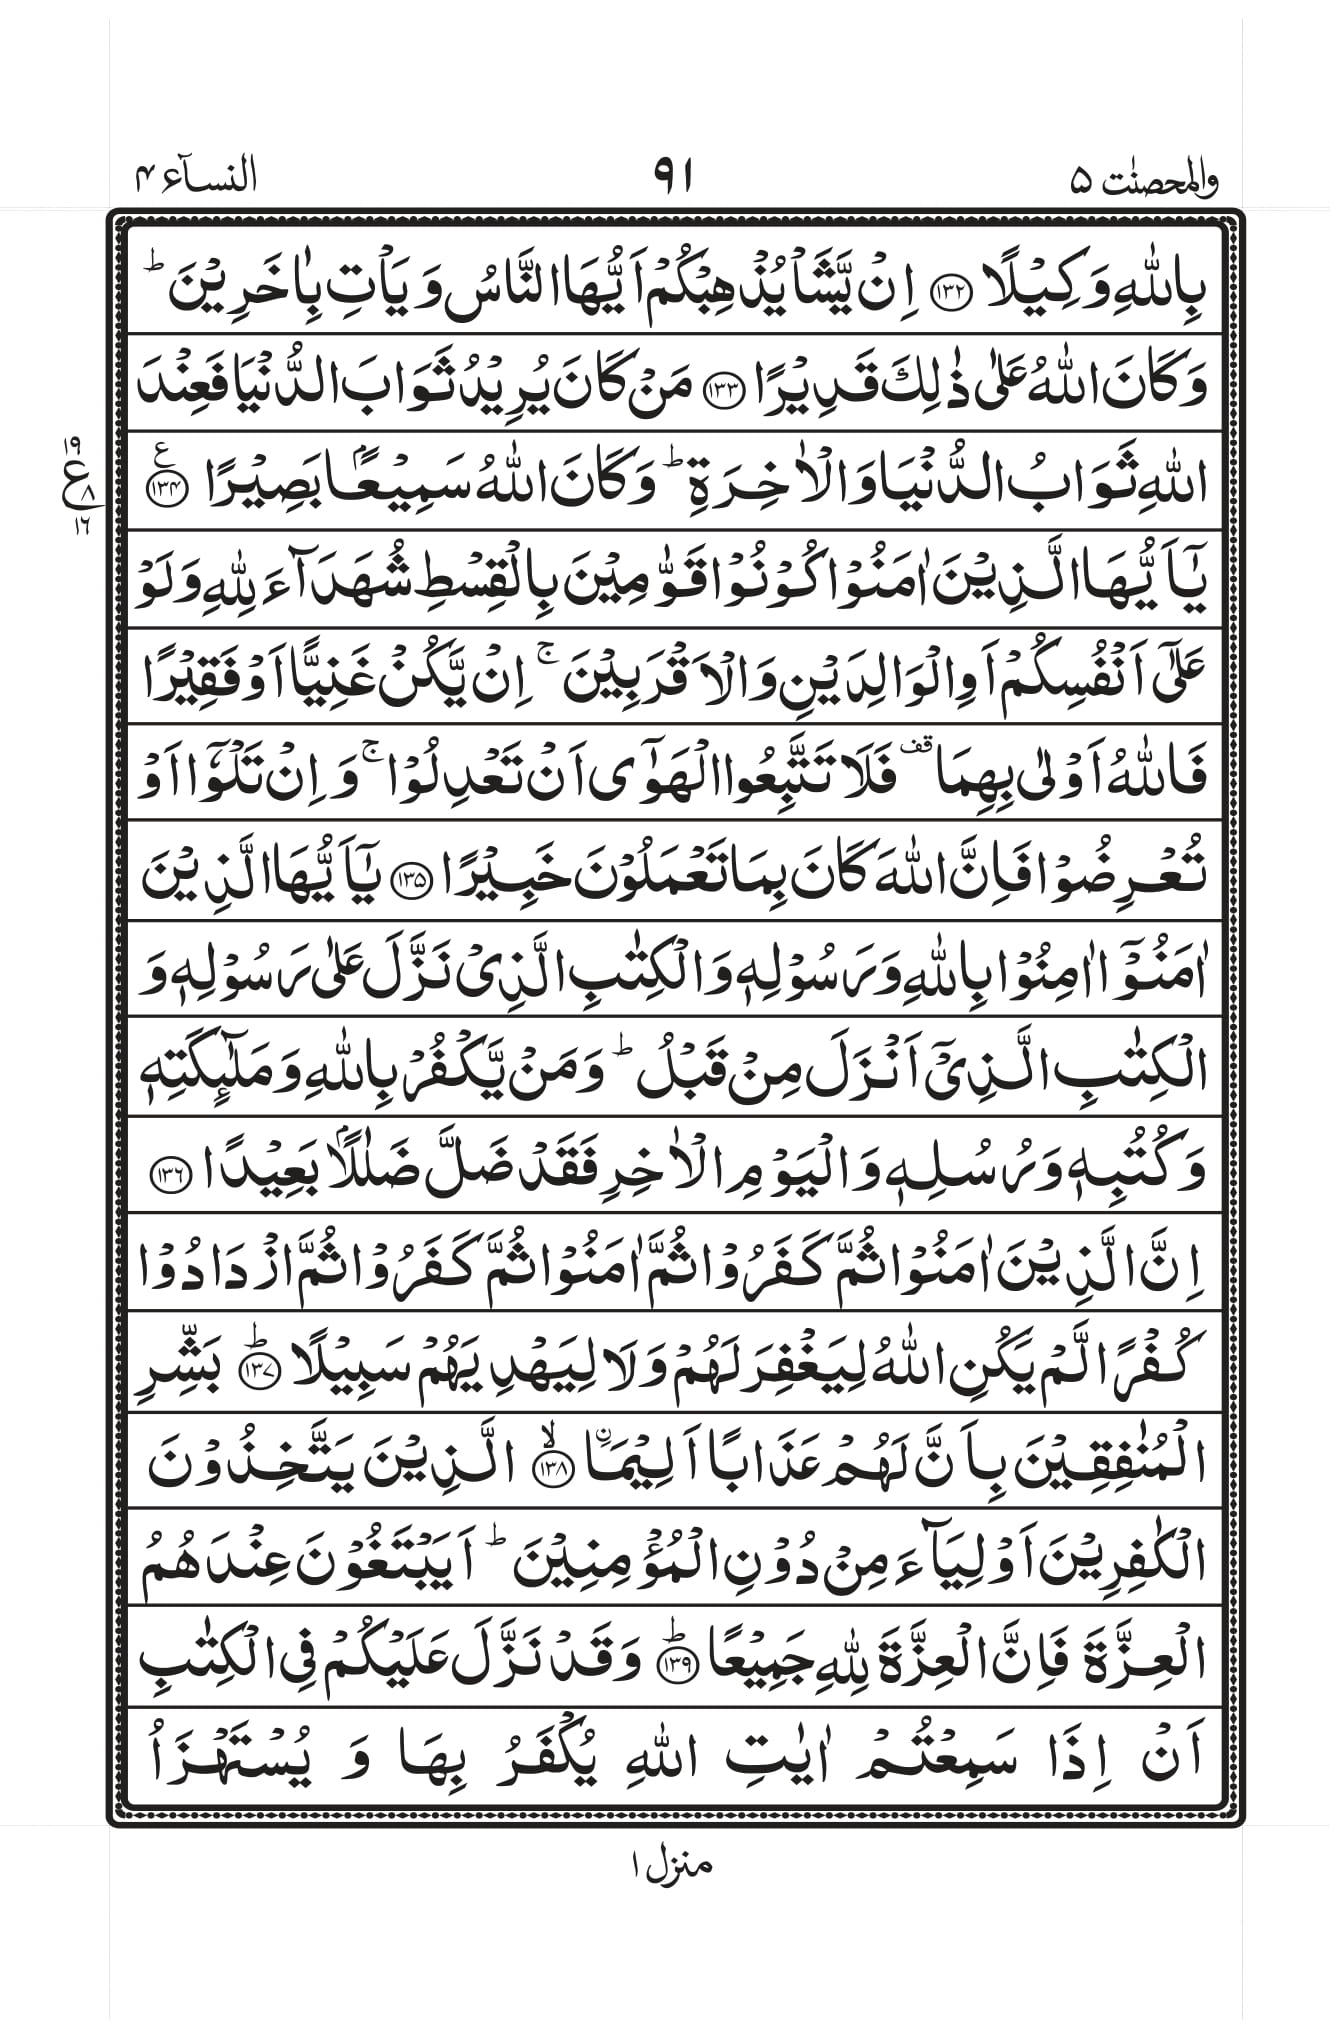 والمحصنٰت ۵
۹۱
النسآء ۴
بِاللّٰهِ وَكِيْلًا ﴿۱۳۲﴾ اِنْ يَّشَاْ يُذْهِبْكُمْ اَيُّهَا النَّاسُ وَ يَاْتِ بِاٰخَرِيْنَ ؕ
وَكَانَ اللّٰهُ عَلٰى ذٰلِكَ قَدِيْرًا ﴿۱۳۳﴾ مَنْ كَانَ يُرِيْدُ ثَوَابَ الدُّنْيَا فَعِنْدَ
اللّٰهِ ثَوَابُ الدُّنْيَا وَالْاٰخِرَةِ ؕ وَكَانَ اللّٰهُ سَمِيْعًۢا بَصِيْرًا ﴿۱۳۴﴾ ع
۱۹ ع ۸ ۱۶
يٰۤاَيُّهَا الَّذِيْنَ اٰمَنُوْا كُوْنُوْا قَوّٰمِيْنَ بِالْقِسْطِ شُهَدَآءَ لِلّٰهِ وَلَوْ
عَلٰۤى اَنْفُسِكُمْ اَوِ الْوَالِدَيْنِ وَالْاَقْرَبِيْنَ ۚ اِنْ يَّكُنْ غَنِيًّا اَوْ فَقِيْرًا
فَاللّٰهُ اَوْلٰى بِهِمَا قف فَلَا تَتَّبِعُوا الْهَوٰۤى اَنْ تَعْدِلُوْا ۚ وَ اِنْ تَلْوٗۤا اَوْ
تُعْرِضُوْا فَاِنَّ اللّٰهَ كَانَ بِمَا تَعْمَلُوْنَ خَبِيْرًا ﴿۱۳۵﴾ يٰۤاَيُّهَا الَّذِيْنَ
اٰمَنُوْۤا اٰمِنُوْا بِاللّٰهِ وَرَسُوْلِهٖ وَالْكِتٰبِ الَّذِيْ نَزَّلَ عَلٰى رَسُوْلِهٖ وَ
الْكِتٰبِ الَّذِيْۤ اَنْزَلَ مِنْ قَبْلُ ؕ وَمَنْ يَّكْفُرْ بِاللّٰهِ وَمَلٰٓئِكَتِهٖ
وَكُتُبِهٖ وَرُسُلِهٖ وَالْيَوْمِ الْاٰخِرِ فَقَدْ ضَلَّ ضَلٰلًۢا بَعِيْدًا ﴿۱۳۶﴾
اِنَّ الَّذِيْنَ اٰمَنُوْا ثُمَّ كَفَرُوْا ثُمَّ اٰمَنُوْا ثُمَّ كَفَرُوْا ثُمَّ ازْدَادُوْا
كُفْرًا لَّمْ يَكُنِ اللّٰهُ لِيَغْفِرَ لَهُمْ وَلَا لِيَهْدِيَهُمْ سَبِيْلًا ؕ﴿۱۳۷﴾ بَشِّرِ
الْمُنٰفِقِيْنَ بِاَنَّ لَهُمْ عَذَابًا اَلِيْمَاۨ ۙ﴿۱۳۸﴾ الَّذِيْنَ يَتَّخِذُوْنَ
الْكٰفِرِيْنَ اَوْلِيَآءَ مِنْ دُوْنِ الْمُؤْمِنِيْنَ ؕ اَيَبْتَغُوْنَ عِنْدَهُمُ
الْعِزَّةَ فَاِنَّ الْعِزَّةَ لِلّٰهِ جَمِيْعًا ؕ﴿۱۳۹﴾ وَقَدْ نَزَّلَ عَلَيْكُمْ فِي الْكِتٰبِ
اَنْ اِذَا سَمِعْتُمْ اٰيٰتِ اللّٰهِ يُكْفَرُ بِهَا وَ يُسْتَهْزَاُ
منزل ۱